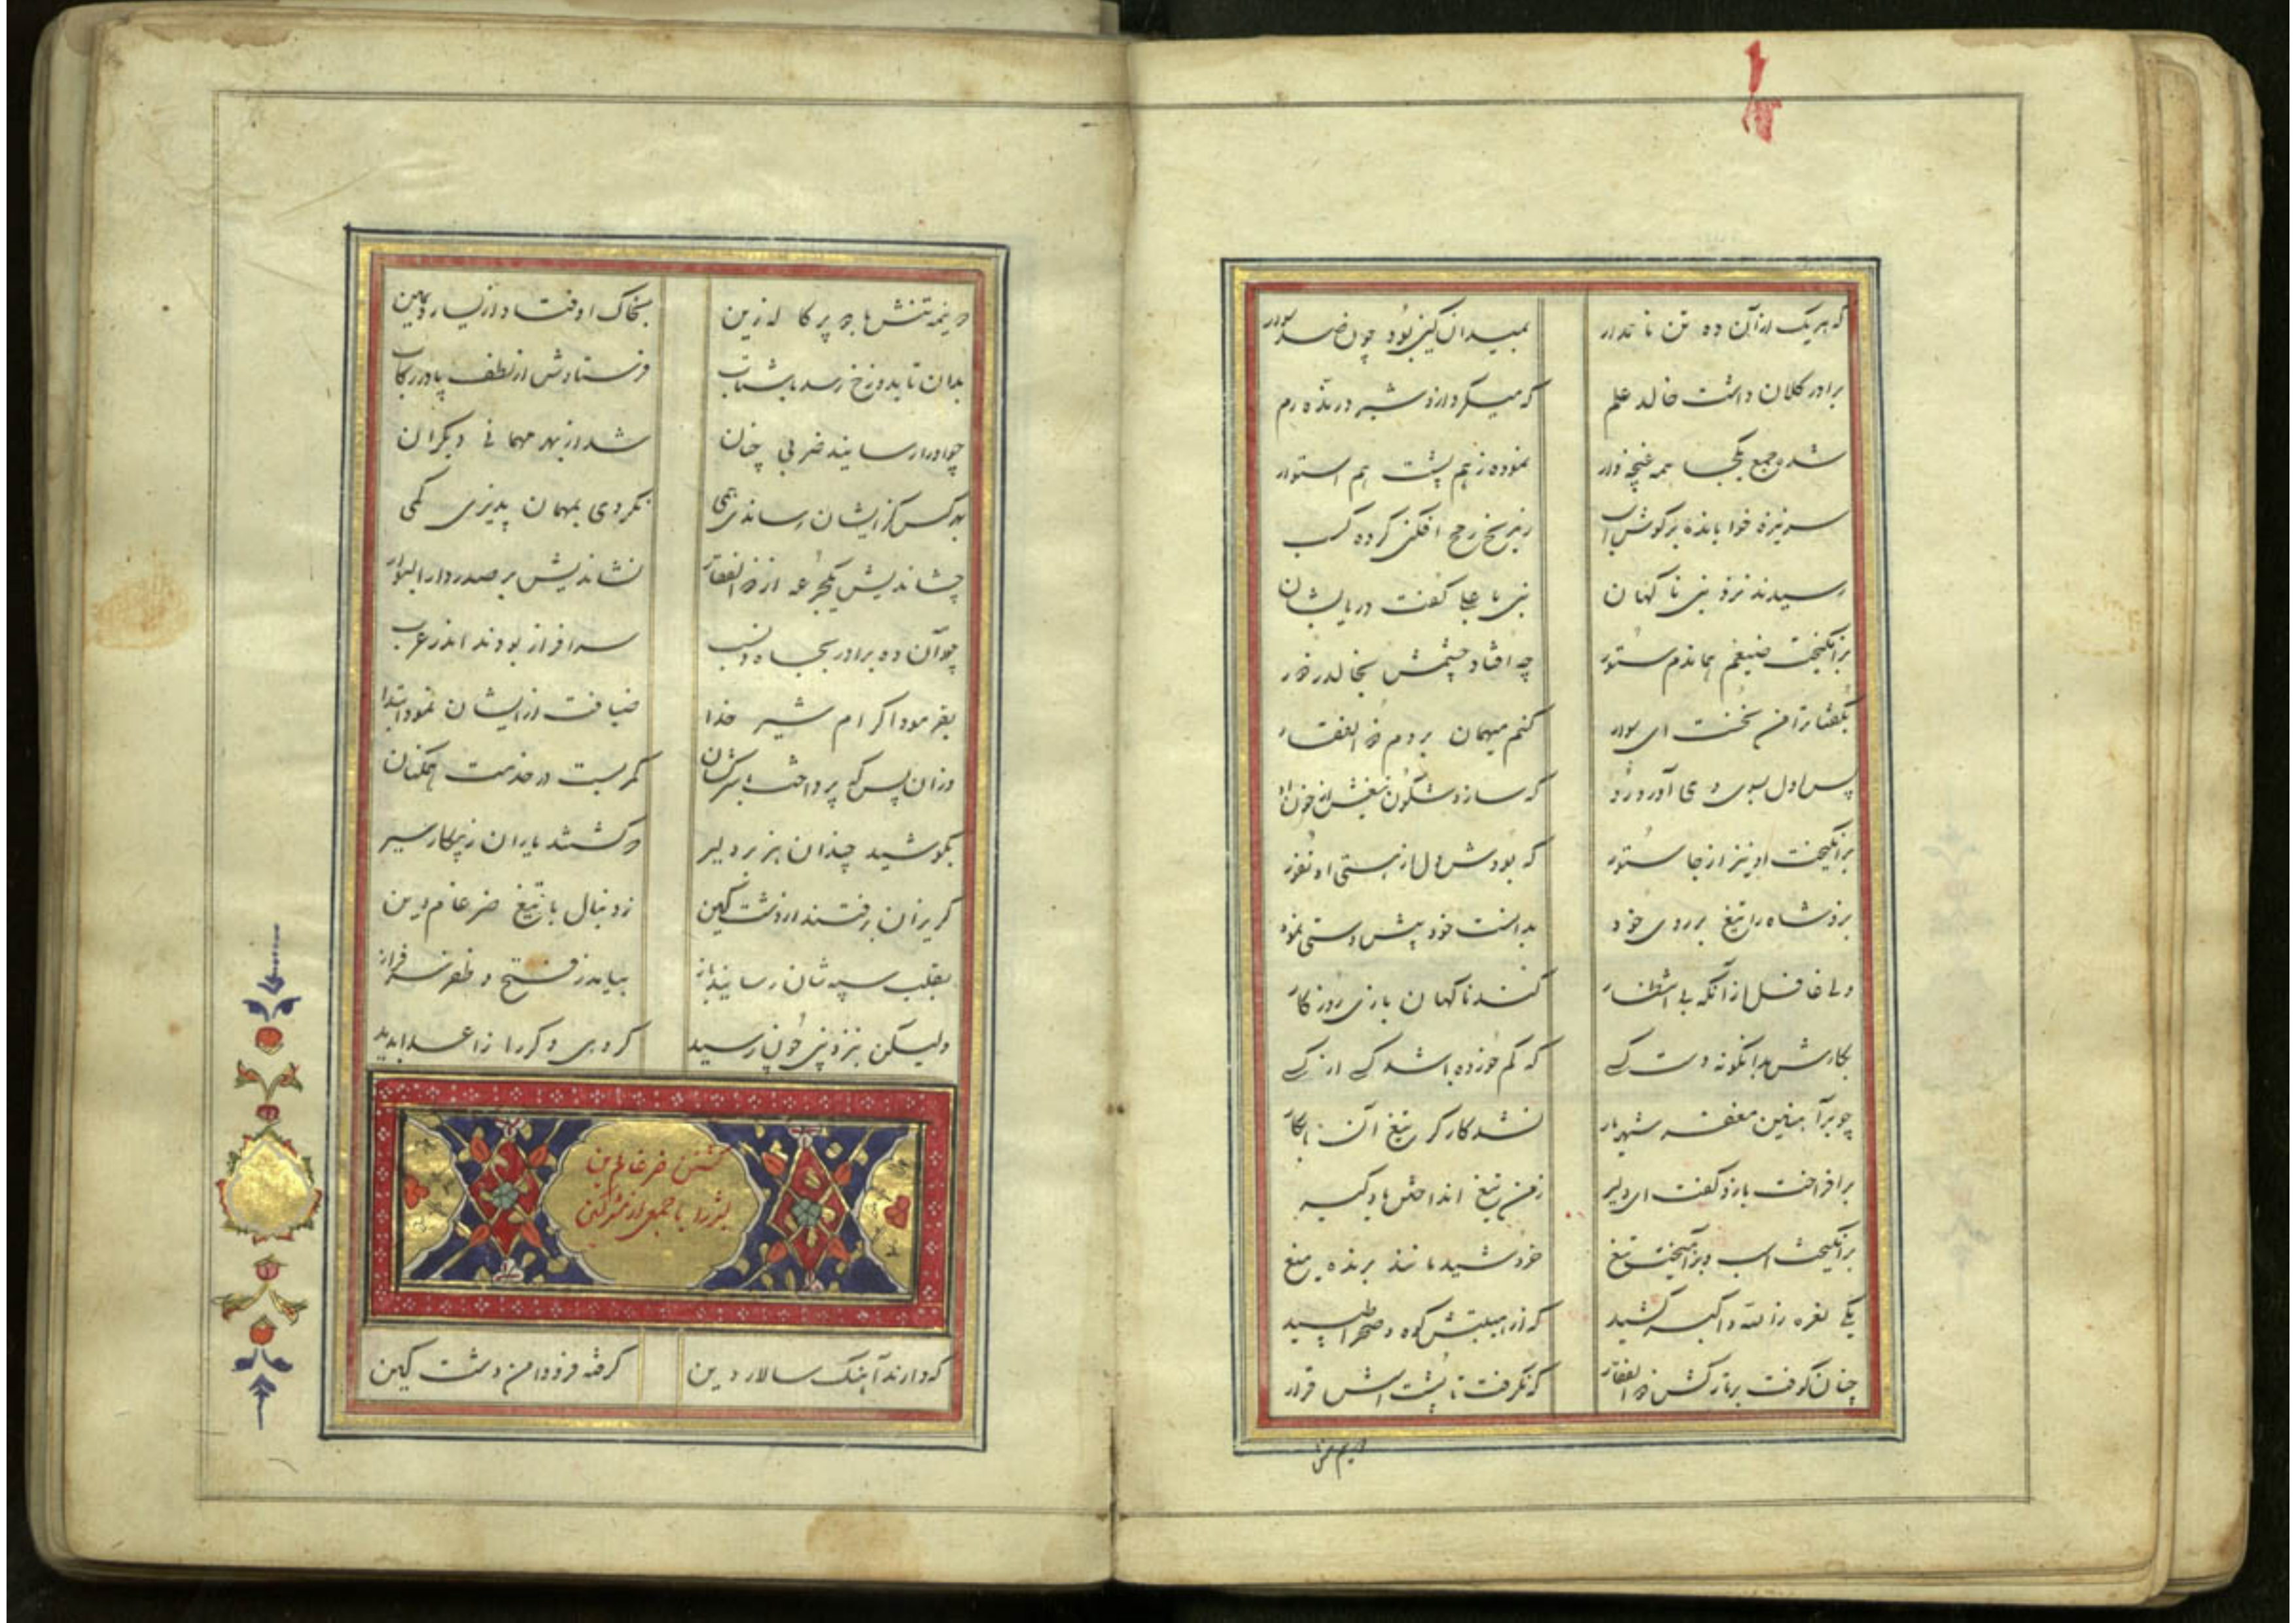 که هریک ازآن ده تن نامدار بمیدان کین بود چون صد سوار
برادر کلان داشت خالد علم که میکرد ازو شیر درنده رم
شده جمع یکجا همه غنچه وار نموده زهم پشت هم استوار
سرنیزه خوابانده بر گوش اسب
رسیدند نزد نبی ناگهان نبی با علی گفت دریابشان
برانگیخت ضیغم هماندم ستور چه افتاد چشمش بخالد ز دور
بگفتا ترا من نخست ای سوار کنم میهمان بر دم ذوالفقار
پس اول بسوی وی آورد رو که سازد شگون تیغش از خون او
برانگیخت او نیز از جا ستور که بودش دل از هستی او نفور
بزد شاه را تیغ بر روی خود بدانست خود پیش دستی نمود
ولی غافل ازآنکه بی انتظار کند ناگهان بازی روزگار
بکارش بدانگونه دست کسی که کم خورده باشد کسی از کسی
چو بر آهنین مغفر شهریار نشد کارگر تیغ آن نابکار
برافراخت بازو گفت ای دلیر زمن تیغ انداختن یاد گیر
برانگیخت اسب و برآمیخت تیغ خروشید مانند برنده میغ
یکی نعره زالله واکبر کشید که از هیبتش کوه و صحرا طپید
چنان کوفت بر تارکش ذوالفقار که نگرفت تا پشت اسبش قرار
دو نیمه تنش با دو پرکاله زین بخاک اوفتاد از یسار و یمین
بدان تا بدوزخ رسد با شتاب فرستادش از لطف پا در رکاب
چو او را رسانید ضربی چنان شد از بهر مهمانی دیگران
بهر کس کز ایشان رساندی همی نکردی بمهمان پذیری کمی
چشاندیش یکجرعه از ذوالفقار نشاندیش بر صدر دارالبوار
چو آن ده برادر بجاه و نسب سرافراز بودند اندر عرب
بفرمود اکرام شیر خدا ضیافت از ایشان نمود ابتدا
وزان پس که پرداخت از سرکشان کمر بست در خدمت همکنان
بکوشید چندان هزبر دلیر که گشتند یاران ز پیکار سیر
گریزان برفتند از دشت کین زدنبال با تیغ ضرغام دین
بقلب سپه شان رسانید باز بیامد ز فتح و ظفر سرفراز
ولیکن بنزد نبی چون رسید گروهی دگر را ز اعدا بدید
کشتن ضرغام دین
بشر را با جمعی از مشرکین
که دارند آهنگ سالار دین گرفته فرو دامن دشت کین